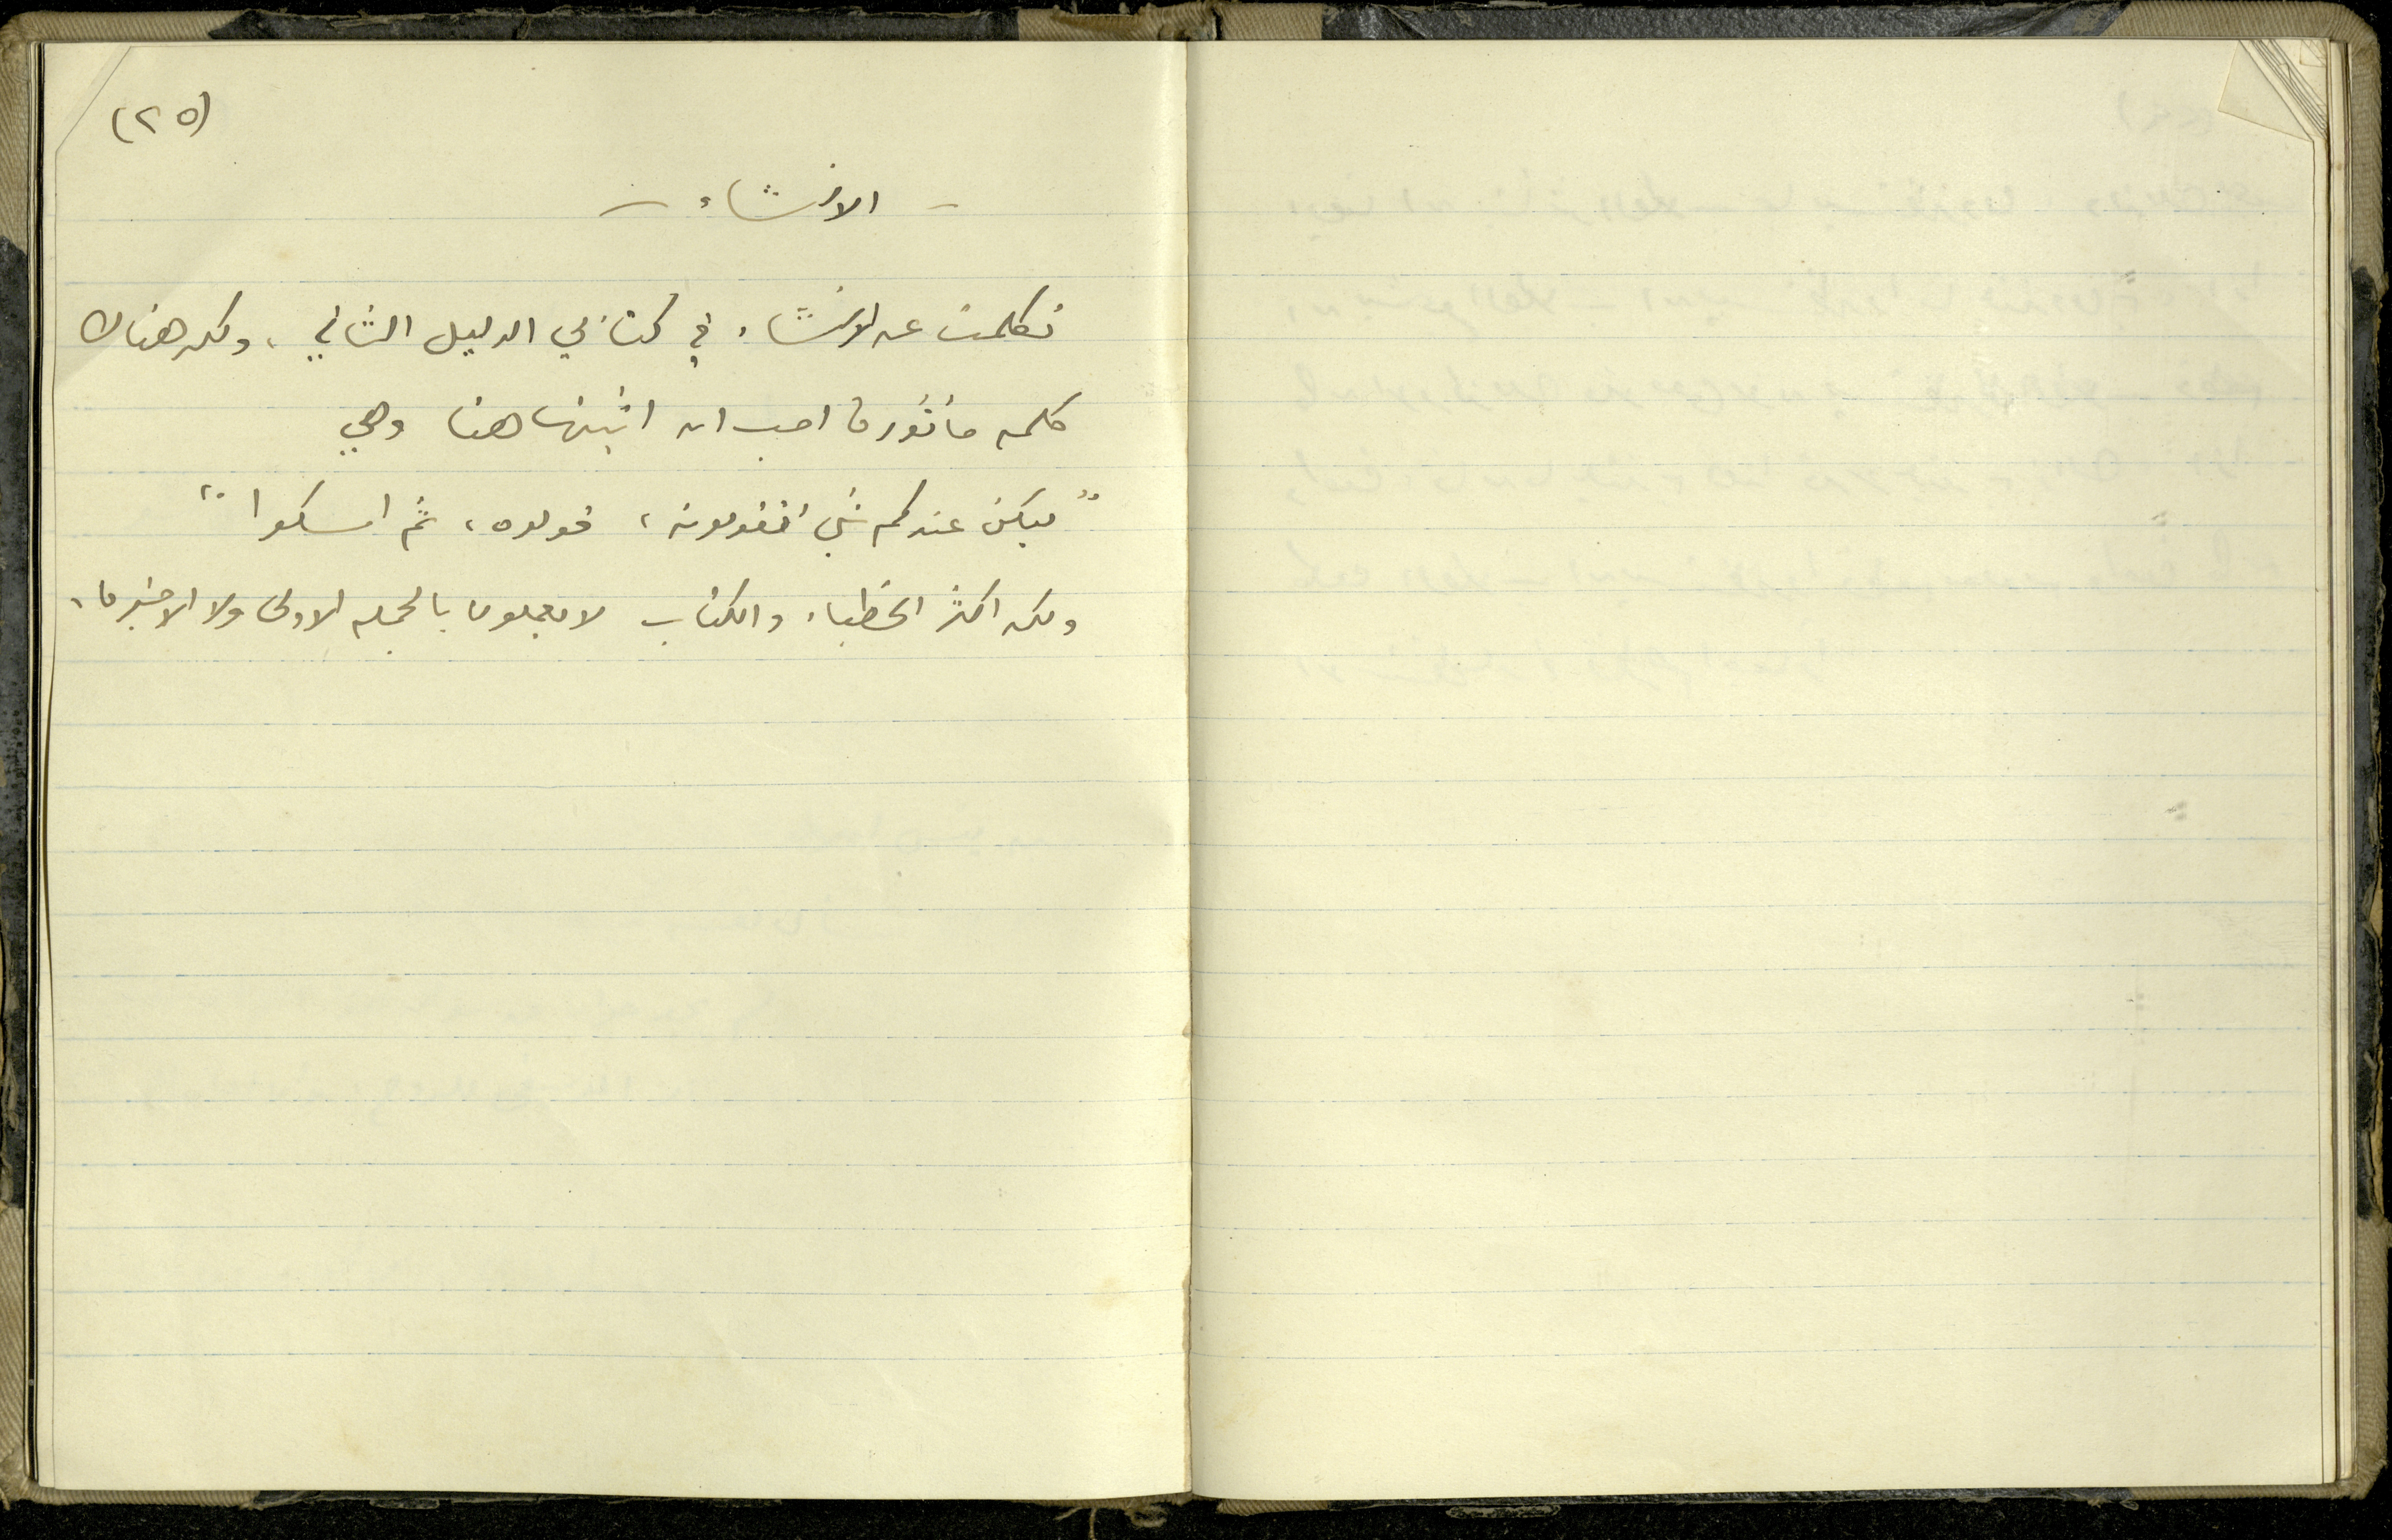 (٢٥)
- الانشاء -
تكلمت عن الانشاء في كتابي الدليل الثاني، ولكن هناك
كلمه مأثورة احب ان اثبتها هنا وهي
"ليكن عندكم شي تقولونه، قولوه، ثم اسكتوا"
ولكن اكثر الخطباء والكتاب لا يعملون بالجمله الاولى ولا الاخيرة،